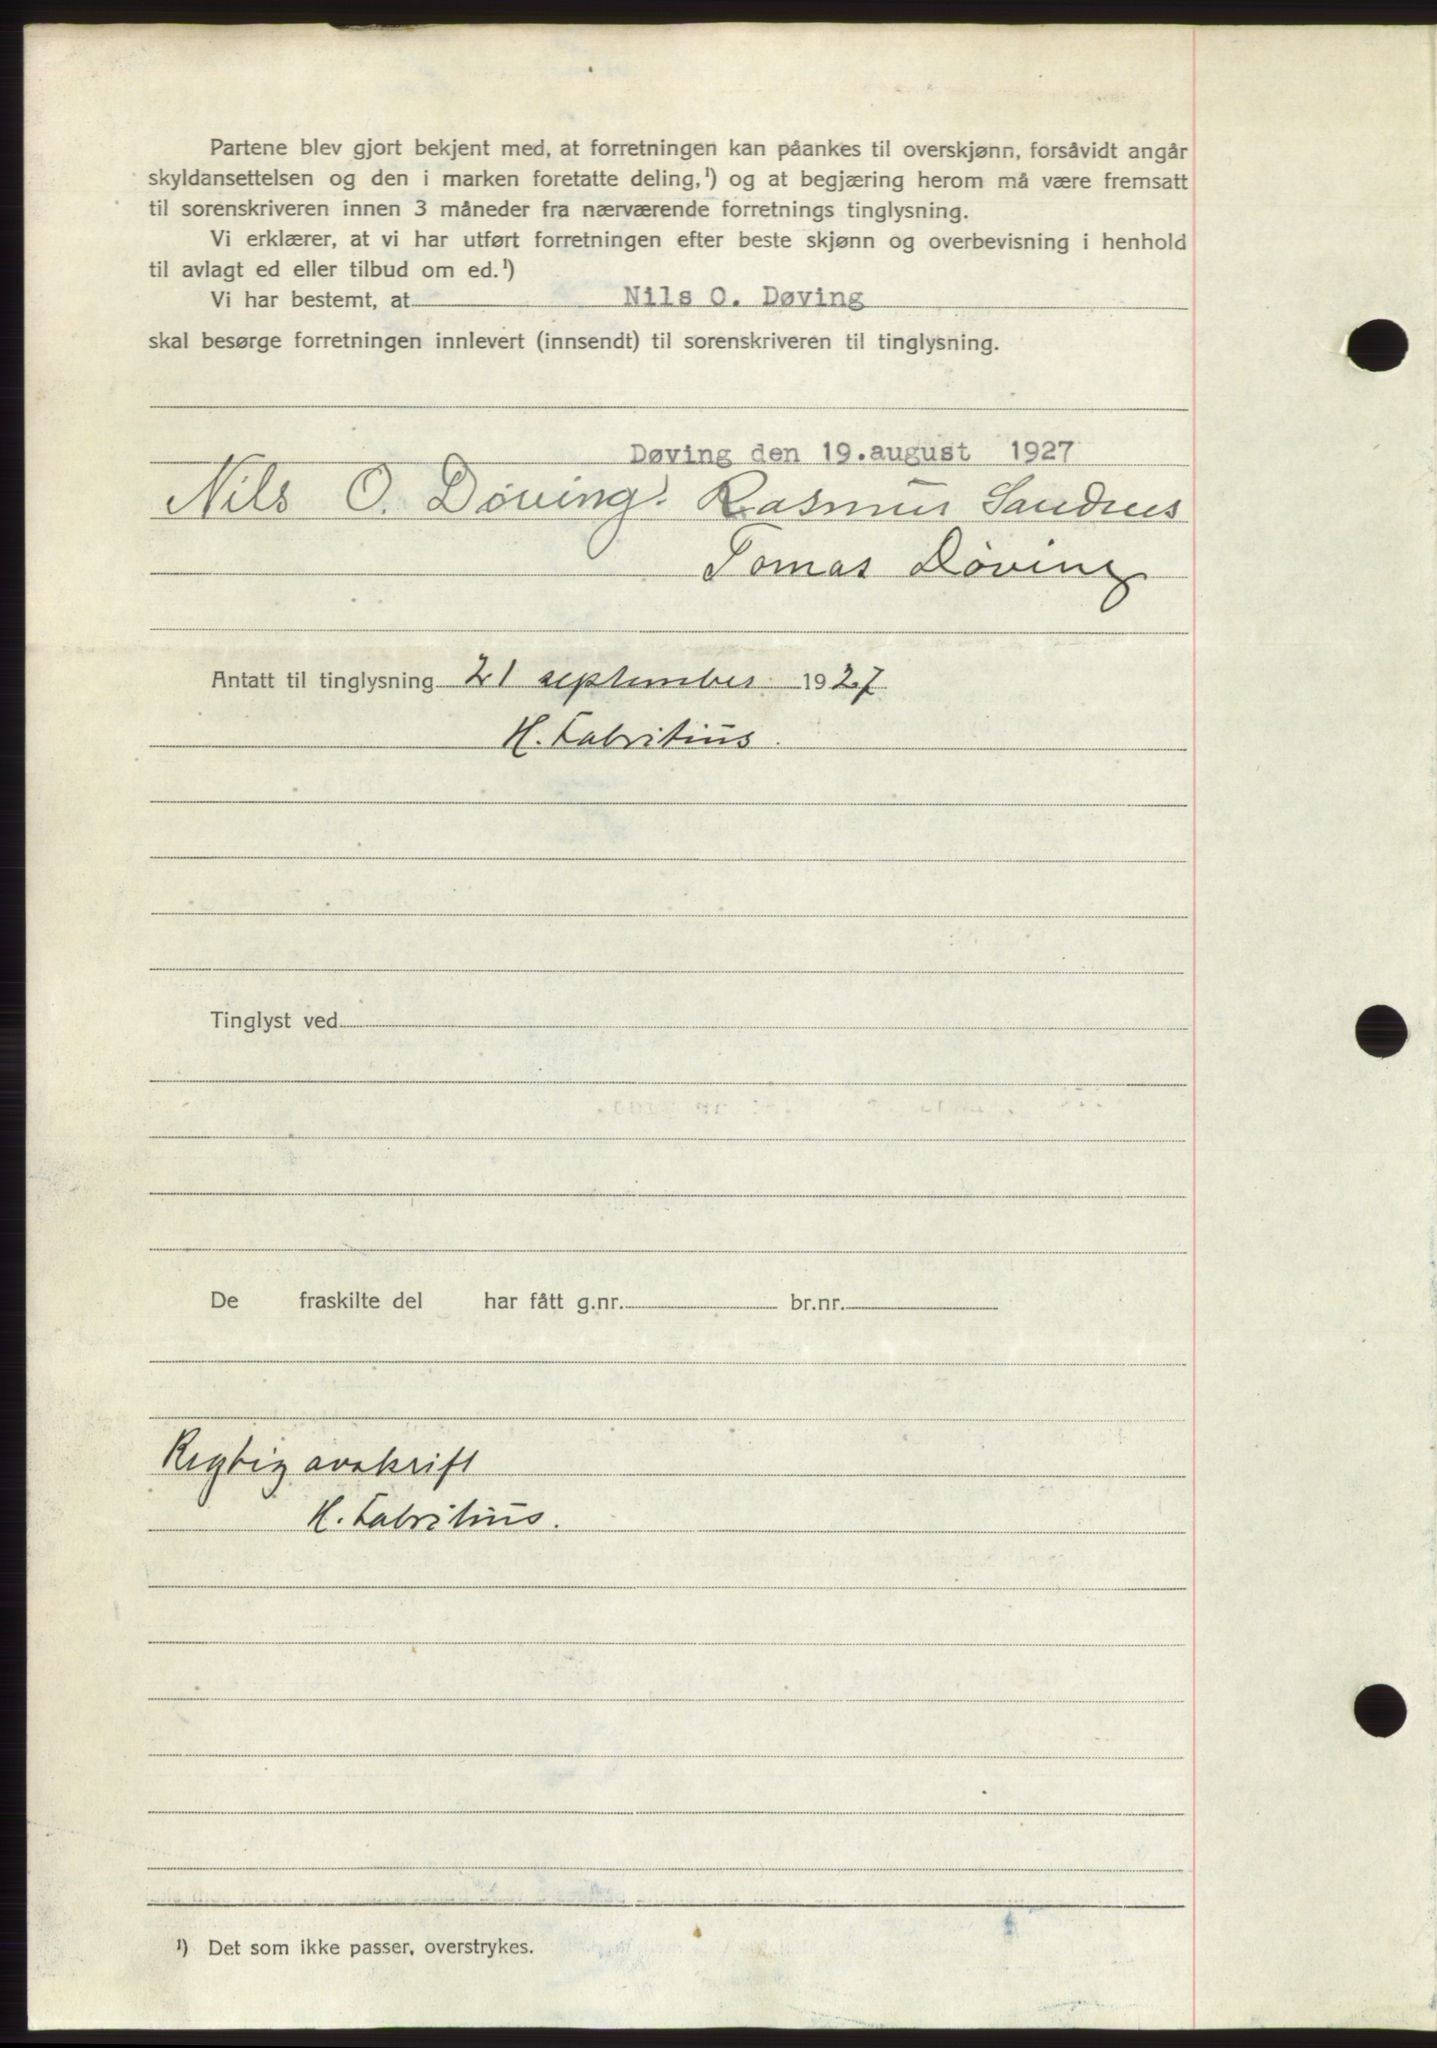 Partene blev gjort bekjent med, at forretningen kan påankes til overskjønn, forsåvidt angår
skyldansettelsen og den i marken foretatte deling,¹) og at begjæring herom må være fremsatt
til sorenskriveren innen 3 måneder fra nærværende forretnings tinglysning.
Vi erklærer, at vi har utført forretningen efter beste skjønn og overbevisning i henhold
til avlagt ed eller tilbud om ed.¹)
Vi har bestemt, at Nils O. Døving
skal besørge forretningen innlevert (innsendt) til sorenskriveren til tinglysning.
Døving den 19.august 1927
Nils O. Döving. Rasmus Sandnes
Tomas Döving
Antatt til tinglysning 21 september 1927
H. Fabritius.
Tinglyst ved
De fraskilte del har fått g.nr. br.nr.
Regtig avskrift
H. Fabritius.
¹) Det som ikke passer, overstrykes.